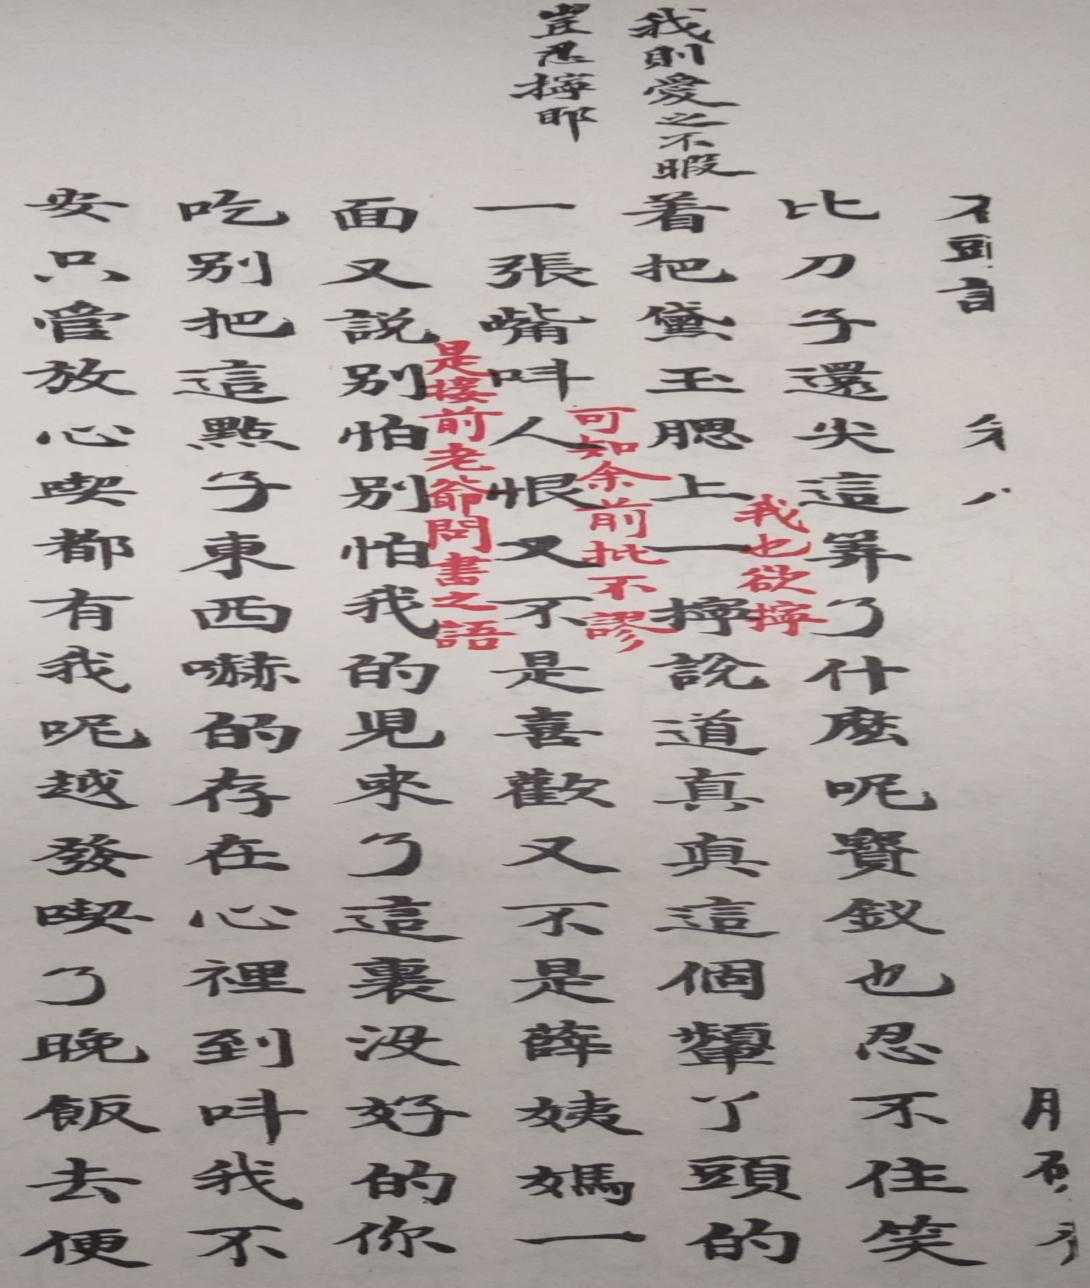 我則愛之不暇
豈忍擰耶
比刀子還尖這筭了什麽呢寳釵也忍不住笑
着把黛玉腮上一擰說道真真這個顰丫頭的
我也欲擰
一張嘴呌人恨又不是喜歡又不是薛姨媽一
可知余前批不謬
面又説别怕别怕我的児來了這裏没好的你
是接前老爺問書之語
吃别把這點子東西嚇的存在心裡到呌我不
安只管放心喫都有我呢越發喫了晚飯去便